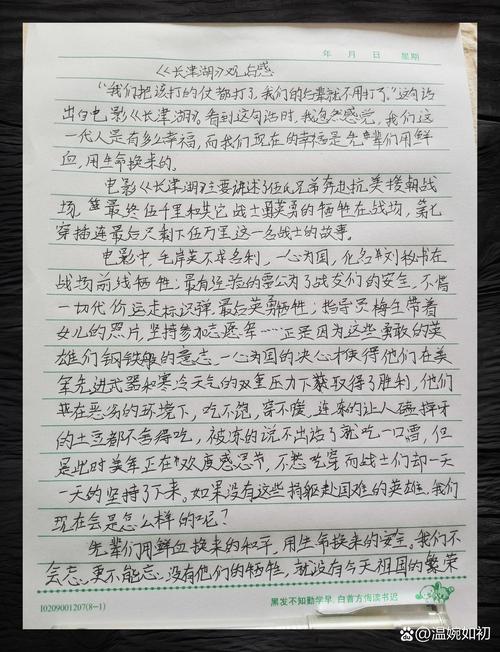 年 月 日 星期
《长津湖》观后感
“我们把该打的仗都打了,我们的后辈就不用打了。”这句话
出自电影《长津湖》,看到这句话时,我忽然感觉,我们这
一代人是有多么幸福,而我们现在的幸福是先辈们用鲜
血,用生命换来的。
电影《长津湖》主要讲述了伍氏兄弟奔赴抗美援朝战
场,最终伍千里和其它战士英勇的牺牲在战场,第七
穿插连最后只剩下伍万里这一名战士的故事。
电影中,毛岸英不求名利,一心为国,化名“刘秘书”在
战场前线牺牲;最有经验的雷公为了战友们的安全,不惜
一切代价运走标识弹最后英勇牺牲;指导员梅生带着
女儿的照片,坚持参加志愿军……正是因为这些勇敢的英
雄们钢铁般的意志,一心为国的决心才使得他们在美
军先进武器和寒冷天气的双重压力下获取得了胜利,他们
在恶劣的环境下,吃不饱,穿不暖,连冻的让人磕掉牙
的土豆都不舍得吃,被冻的说不出话了就吃一口雪,但
是此时美军正在欢度感恩节,不愁吃穿而战士们却一天
一天的坚持了下来。如果没有这些捐躯赴国难的英雄,我们
现在会是怎么样的呢?
先辈们用鲜血换来的和平,用生命换来的安全。我们不
会忘,更不能忘,没有他们的牺牲,就没有今天祖国的繁荣
I0209001207(8-1)
黑发不知勤学早,白首方悔读书迟
@温婉如初